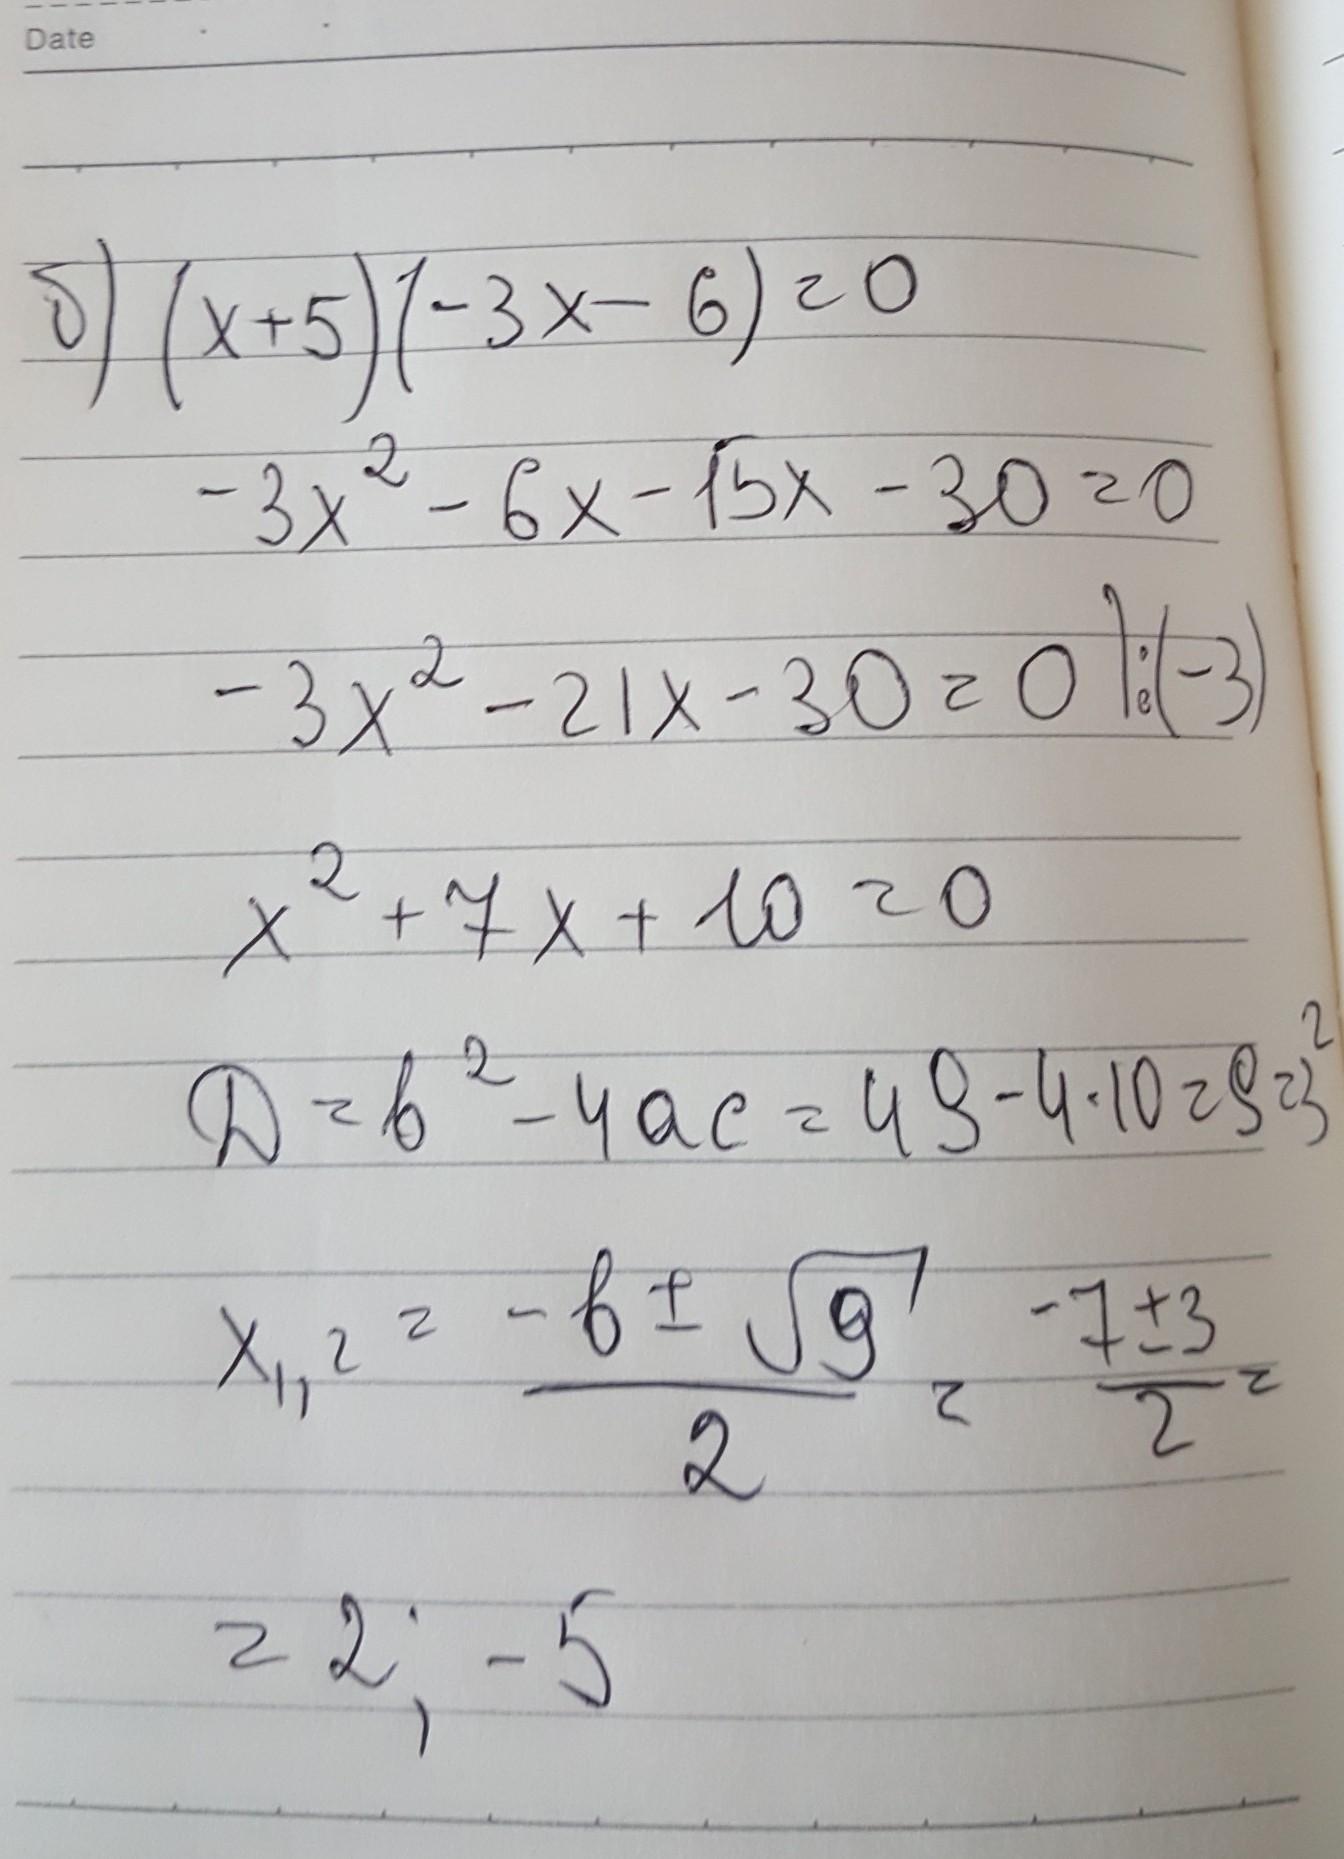 Date
б) (x+5)(-3x-6)=0
-3x²-6x-15x-30=0
-3x²-21x-30=0 |:(-3)
x²+7x+10=0
D=b²-4ac=49-4·10=9=3²
x₁,₂ = (-b±√9)/2 = (-7±3)/2 =
= 2; -5